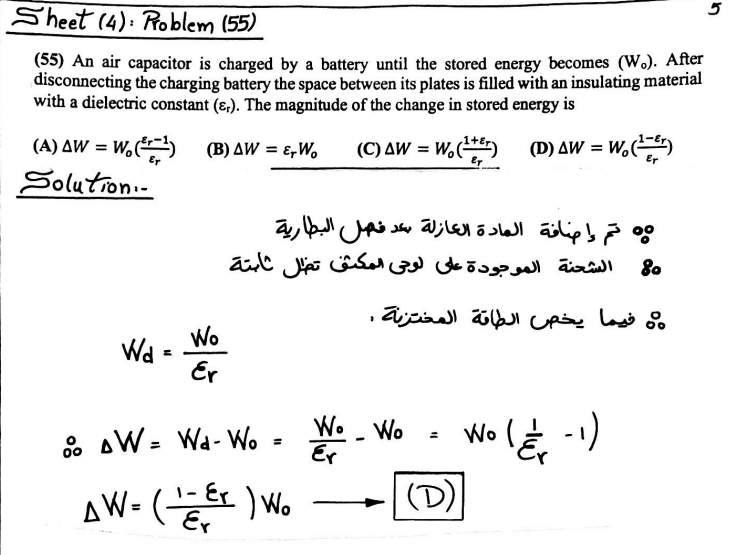 5
Sheet (4): Problem (55)
(55) An air capacitor is charged by a battery until the stored energy becomes (Wₒ). After
disconnecting the charging battery the space between its plates is filled with an insulating material
with a dielectric constant (εᵣ). The magnitude of the change in stored energy is
(A) ΔW = Wₒ((εᵣ−1)/εᵣ) (B) ΔW = εᵣWₒ (C) ΔW = Wₒ((1+εᵣ)/εᵣ) (D) ΔW = Wₒ((1−εᵣ)/εᵣ)
Solution:-
∵ تم إضافة المادة العازلة بعد فصل البطارية
∴ الشحنة الموجودة على لوحى المكثف تظل ثابتة
∴ فيما يخص الطاقة المختزنة،
Wd = Wo/εr
∴ ΔW = Wd - Wo = Wo/εr - Wo = Wo (1/εr - 1)
ΔW = ((1-εr)/εr) Wo → (D)